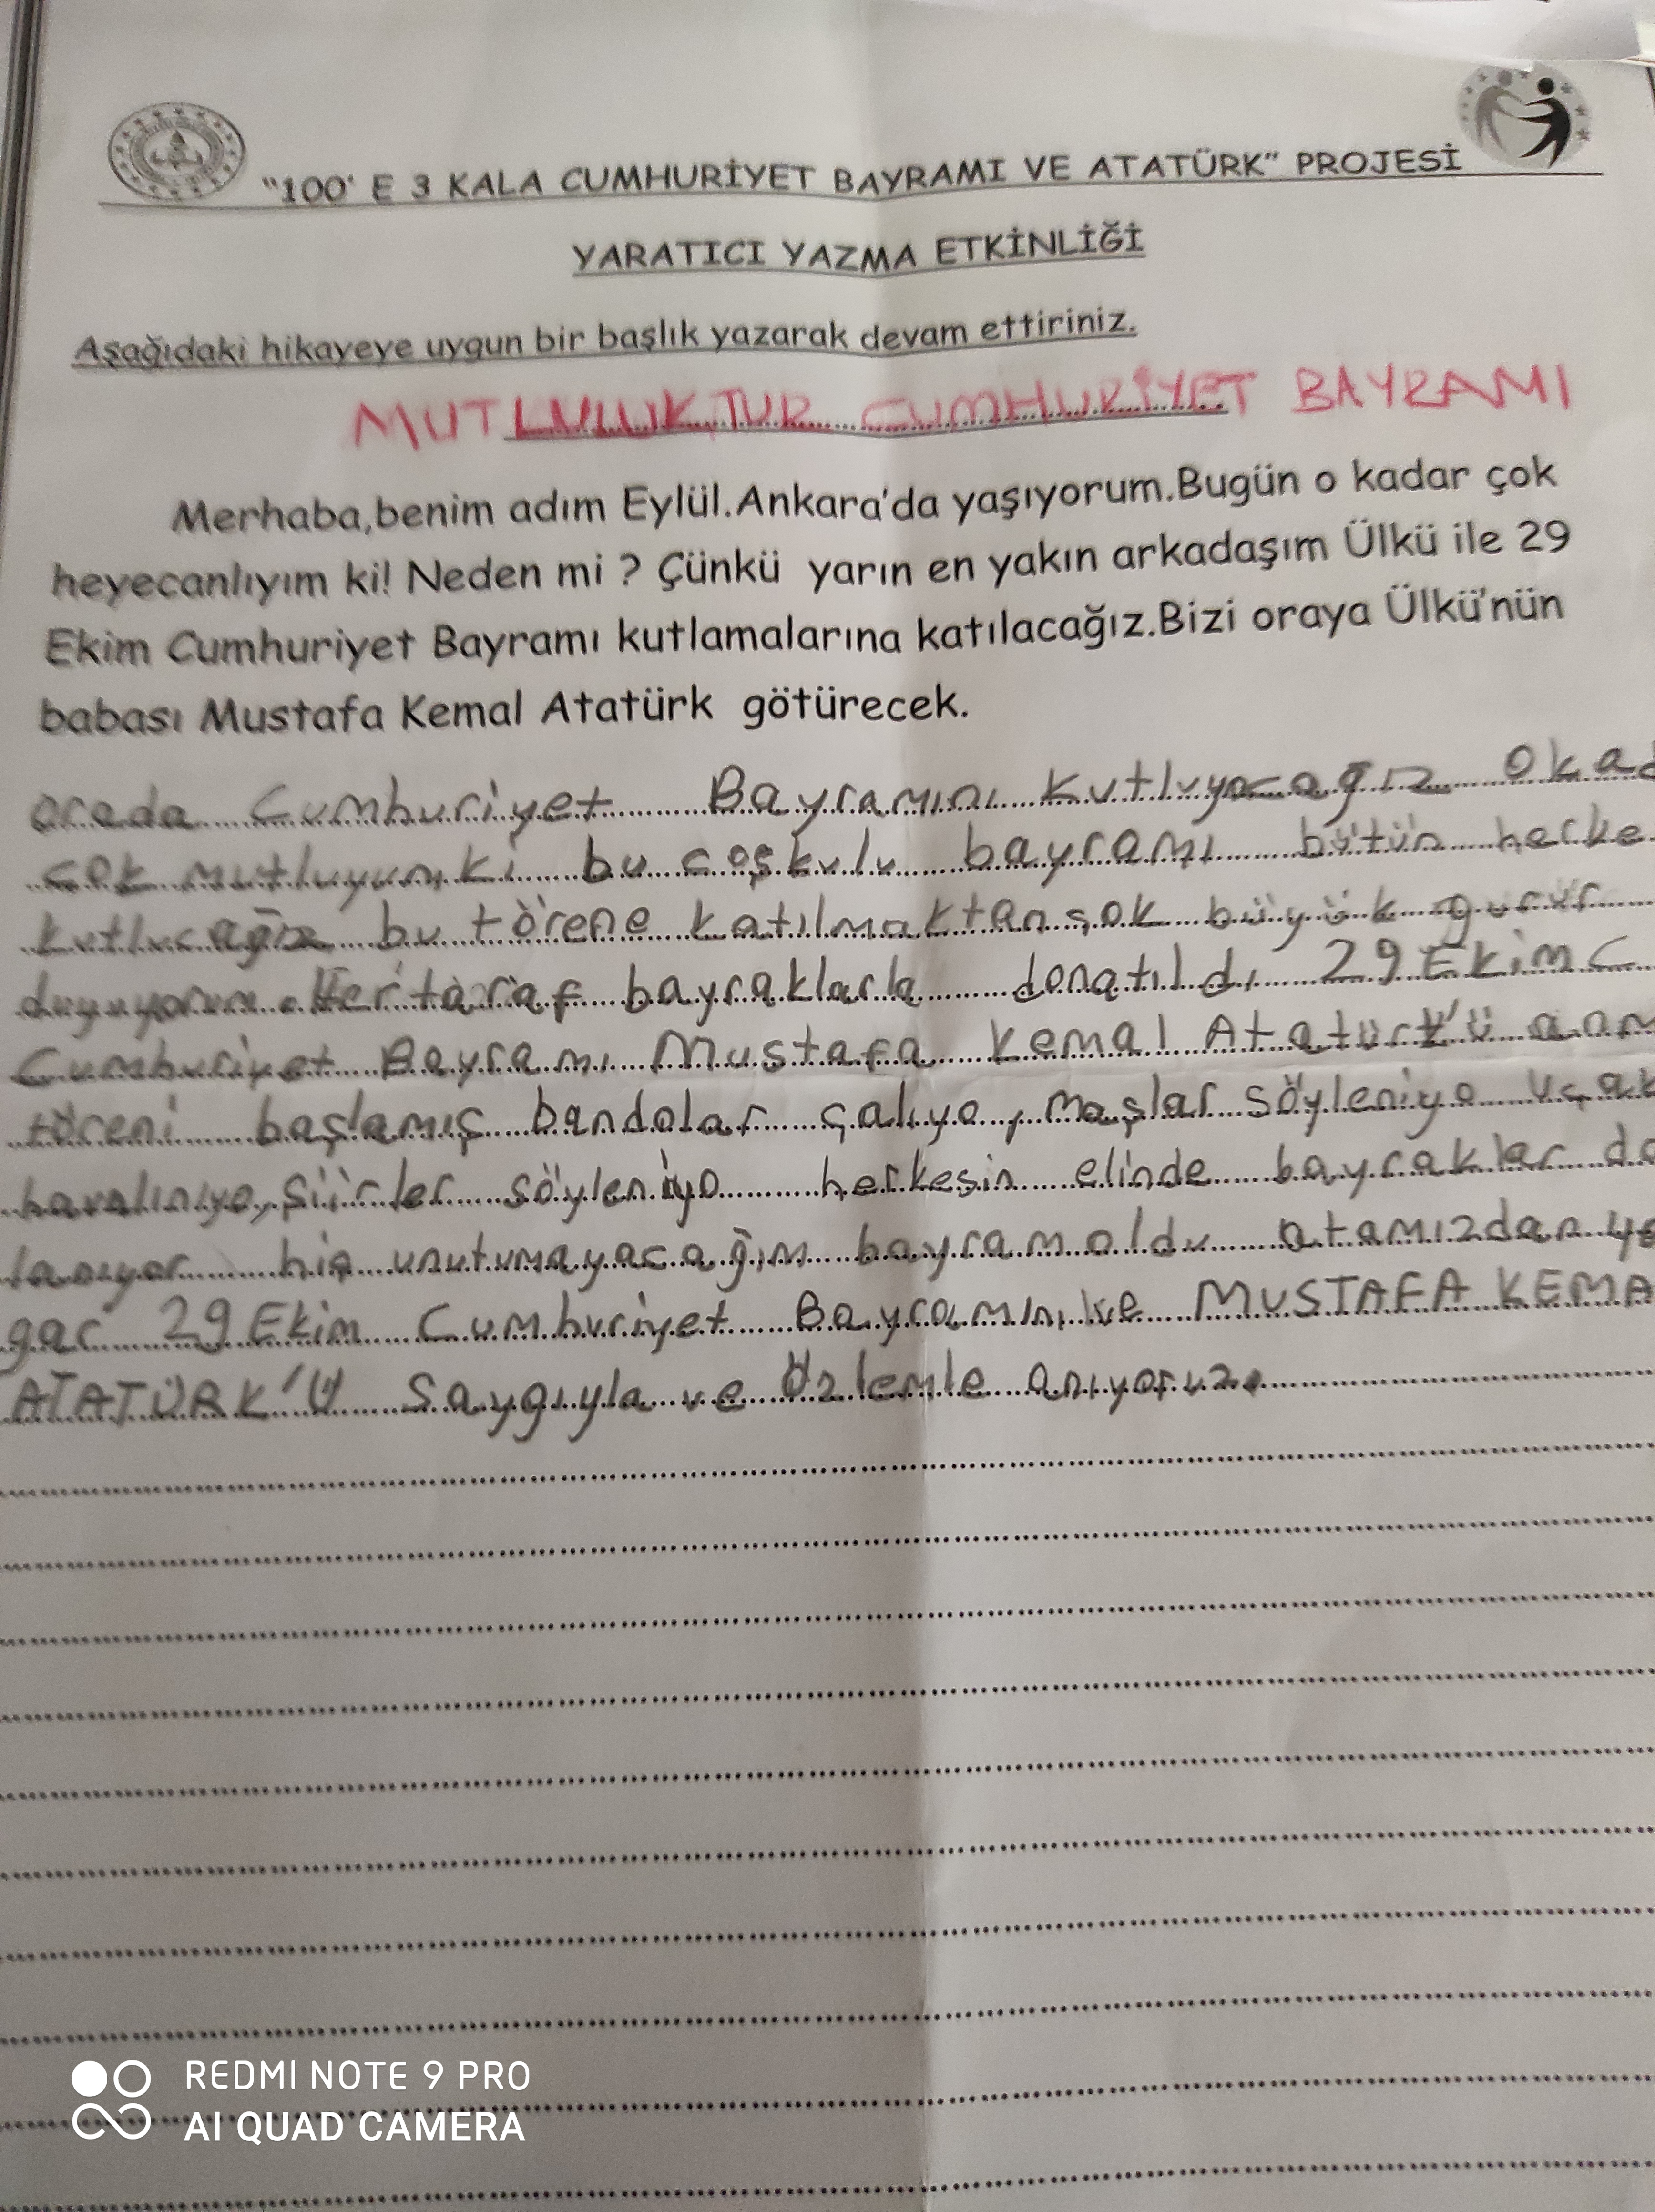 "100' E 3 KALA CUMHURİYET BAYRAMI VE ATATÜRK" PROJESİ
YARATICI YAZMA ETKİNLİĞİ
Aşağıdaki hikayeye uygun bir başlık yazarak devam ettiriniz.
MUTLULUKTUR CUMHURİYET BAYRAMI
Merhaba,benim adım Eylül.Ankara'da yaşıyorum.Bugün o kadar çok
heyecanlıyım ki! Neden mi ? Çünkü yarın en yakın arkadaşım Ülkü ile 29
Ekim Cumhuriyet Bayramı kutlamalarına katılacağız.Bizi oraya Ülkü'nün
babası Mustafa Kemal Atatürk götürecek.
orada Cumhuriyet Bayramını kutluyacağız okad
çok mutluyum ki bu coşkulu bayramı bütün herke
kutlucağız bu törene katılmaktan çok büyük gurur
duyuyorum. Her taraf bayraklarla donatıldı 29 Ekim C
Cumhuriyet Bayramı Mustafa Kemal Atatürk'ü anm
töreni başlamış bandolar çalıyo, maşlar söyleniyo uçak
havalınıyo, şiirler söyleniyo herkesin elinde bayraklar da
lanıyor hiç unutumayacağım bayram oldu atamızdan ya
gar 29 Ekim Cumhuriyet Bayramını ve MUSTAFA KEMA
ATATÜRK'Ü Saygıyla ve Özlemle anıyoruz.
REDMI NOTE 9 PRO
AI QUAD CAMERA